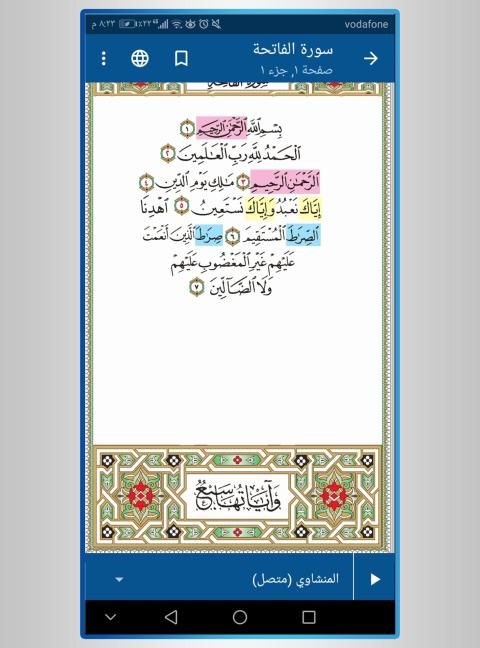 vodafone
٨:٢٣ م
٪٢٢
سورة الفاتحة
صفحة ١, جزء ١
سورة الفاتحة
بِسْمِ ٱللَّهِ ٱلرَّحْمَٰنِ ٱلرَّحِيمِ ١
ٱلْحَمْدُ لِلَّهِ رَبِّ ٱلْعَٰلَمِينَ ٢
ٱلرَّحْمَٰنِ ٱلرَّحِيمِ ٣ مَٰلِكِ يَوْمِ ٱلدِّينِ ٤
إِيَّاكَ نَعْبُدُ وَإِيَّاكَ نَسْتَعِينُ ٥ ٱهْدِنَا
ٱلصِّرَٰطَ ٱلْمُسْتَقِيمَ ٦ صِرَٰطَ ٱلَّذِينَ أَنْعَمْتَ
عَلَيْهِمْ غَيْرِ ٱلْمَغْضُوبِ عَلَيْهِمْ
وَلَا ٱلضَّآلِّينَ ٧
وَآيَاتُهَا سَبْعٌ
المنشاوي (متصل)